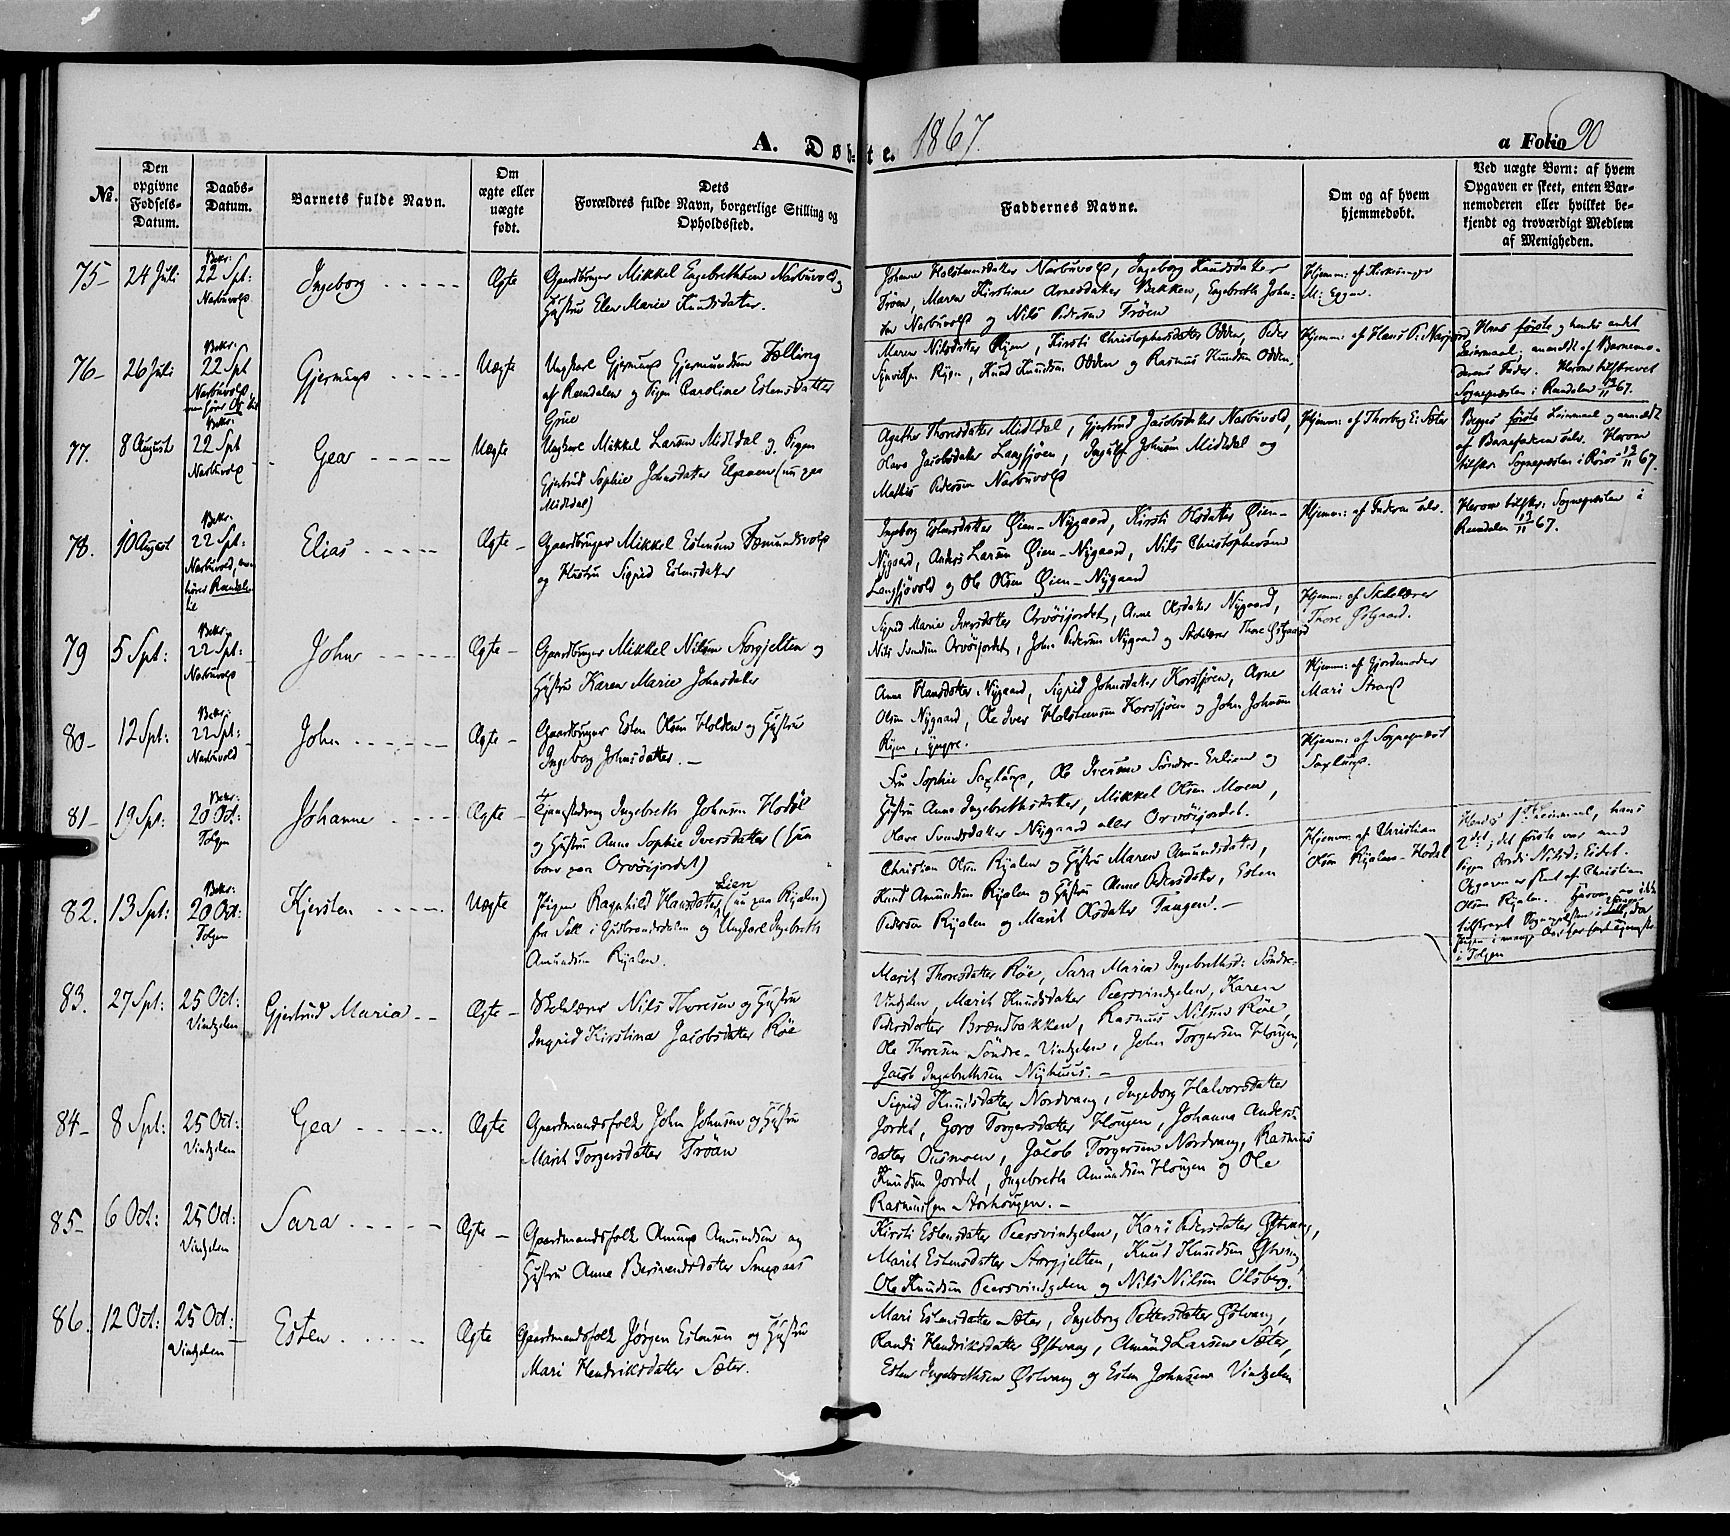 A. Døbte. 1867.
a Folio 90
No.
Den
opgivne
Fødsels-
Datum.
Daabs-
Datum.
Barnets fulde Navn.
Om
ægte eller
uægte
født.
Dets
Forældres fulde Navn, borgerlige Stilling og
Opholdssted.
Faddernes Navne.
Om og af hvem
hjemmedøbt.
Ved uægte Børn: af hvem
Opgaven er skeet, enten Bar-
nemoderen eller hvilket be-
kjendt og troværdigt Medlem
af Menigheden.
75- 24 Juli
Bekr:
22 Spt:
Narbuvold
Ingeborg
Ægte
Gaardbruger Mikkel Engebrethsen Narbuvold og
Hustru Elen Marie Knudsdatter.
Johanne Holstensdatter Narbuvold, Ingeborg Knudsdatter
Trøen, Maren Kirstine Arnesdatter Bekken, Engebreth John-
sen Narbuvold og Nils Pedersen Trøen
Hjemm: af Kirkesanger
M: Eggen.
76- 26 Juli
Bekr:
22 Spt
Narbuvold
Gjermund
Uægte
Ungkarl Gjermund Gjermundsen Fælling
af Rendalen og Pigen Caroline Estensdatter
Grue
Maren Nilsdatter Øien, Kirsti Christophersdatter Odden, Peder
Syvertsen Ryen, Knud Knudsen Odden og Rasmus Knudsen Odden.
Hjemm: af Hans P: Narjord
Hans første og hendes andet
Leiermaal; anmeldt af Barnemo-
derens Fader. Herom tilskrevet
Sognepresten i Rendalen 13/11 67.
77. 8 August
Bekr:
22 Spt
Narbuvold
Gear
Uægte
Ungkarl Mikkel Larsen Midtdal og Pigen
Gjertrud Sophie Johnsdatter Elgaaen (nu paa
Midtdal)
Agathe Thoresdatter Midtdal, Gjertrud Jacobsdatter Narbuvold,
Olava Jacobsdatter Langsjøen, Ingulf Johnsen Midtdal og
Mathis Pedersen Narbuvold
Hjemm: af Thorberg E: Sæter
Begges første Leiermaal og anmeldt
af Barnefaderen selv. Herom
tilskr. Sognepresten i Røros 13/11 67.
78. 10 August
Bekr:
22 Spt:
Narbuvold, men
hører Rendalen
til
Elias
Ægte
Gaardbruger Mikkel Estensen Fæmundsvold
og Hustru Sigrid Estensdatter
Ingeborg Estensdatter Øien-Nygaard, Kirsti Olsdatter Øien-
Nygaard, Anders Larsen Øien-Nygaard, Nils Christophersen
Langsjøvold og Ole Olsen Øien-Nygaard
Hjemm: af Faderen selv.
Herom tilskr: Sognepresten i
Rendalen 13/11 67.
79 5 Spt:
Bekr:
22 Spt:
Narbuvold
John
Ægte
Gaardbruger Mikkel Nilsen Storgjelten og
Hustru Karen Marie Johnsdatter
Sigrid Marie Iversdatter Orvøijordet, Anne Olsdatter Nygaard,
Nils Svendsen Orvøijordet, John Pedersen Nygaard og Skolelærer Thore Østgaard
Hjemm: af Skolelærer
Thore Østgaard.
80- 12 Spt:
Bekr:
22 Spt:
Narbuvold
John
Ægte
Gaardbruger Esten Olsen Holden og Hustru
Ingeborg Johnsdatter.
Anne Hansdatter Nygaard, Sigrid Johnsdatter Korssjøen, Arne
Olsen Nygaard, Ole Iver Holstensen Korssjøen og John Johnsen
Ryen, yngre.
Hjemm: af Gjordemoder
Mari Strand
81- 19 Spt:
Bekr:
20 Oct:
Tolgen
Johanne
Ægte
Ingebreth Johnsen Hodøl
og Hustru Anne Sophie Iversdatter (hun
bor paa Orvøijordet)
Fru Sophie Saxlund, Ole Iversen Søndre-Erlien og
Hustru Anne Ingebrethsdatter, Mikkel Olsen Moen,
Olava Svendsdatter Nygaard eller Orvøijordet.
Hjemm: af Sognepræst
Saxlund.
82. 13 Spt:
Bekr:
20 Oct:
Tolgen
Kjersten
Uægte
Pigen Ragnhild Hansdatter Lien (nu paa Rijalen)
fra Sell i Gudbrandsdalen og Ungkarl Ingebreth
Amundsen Rijalen.
Christian Olsen Rijalen og Hustru Maren Amundsdatter,
Knud Amundsen Rijalen og Hustru Anne Pedersdatter, Esten
Pedersen Rijalen og Marit Olsdatter Tangen.
Hjemm: af Christian
Olsen Rijalen-Hodal
Hendes 1ste Leiermaal, hans
2det; det første var med
Pigen Berit Nilsd: Eidet.
Opgaven er skeet af Christian
Olsen Rijalen. Herom er ikke
tilskrevet Sognepresten i Sell, da
Pigen i mange Aar har havt tjeneste
i Tolgen
83. 27 Spt:
25 Oct:
Vindgelen
Gjertrud Maria
Ægte
Skolelærer Nils Thoresen og Hustru
Ingrid Kirstina Jacobsdatter Røe
Marit Thoresdatter Røe, Sara Maria Ingebrethsd: Søndre-
Vingelen, Marit Knudsdatter Peersvindgelen, Karen
Pedersdatter Brændbakken, Rasmus Nilsen Røe,
Ole Thoresen Søndre-Vindgelen, John Torgersen Hougen,
Jacob Ingebrethsen Nyhuus.
84- 8 Spt:
25 Oct:
Vindgelen
Gea
Ægte
Gaardmandsfolk John Johnsen og Hustru
Marit Torgersdatter Trøan
Sigrid Knudsdatter Nordvang, Ingeborg Halvorsdatter
Jordet, Goro Torgersdatter Hougen, Johanna Anders-
datter Ousmoen, Jacob Torgersen Nordvang, Rasmus
Knudsen Jordet, Ingebreth Amundsen Hougen og Ole
Rasmussen Storhougen.
85- 6 Oct:
25 Oct:
Vindgelen
Sara
Ægte
Gaardmandsfolk Amund Amundsen og
Hustru Anne Bersvendsdatter Smedaas
Kirsti Estensdatter Peersvindgelen, Kari Pedersdatter Østvang,
Marit Estensdatter Storgjelten, Knud Knudsen Østvang,
Ole Knudsen Peersvindgelen og Nils Nilsen Olsberg.
86. 12 Oct:
25 Oct:
Vindgelen
Esten
Ægte
Gaardmandsfolk Jørgen Estensen og Hustru
Mari Hendriksdatter Sæter.
Mari Estensdatter Sæter, Ingeborg Pettersdatter Østvang,
Randi Hendriksdatter Østvang, Amund Larsen Sæter,
Esten Ingebrethsen Østvang og Esten Johnsen Vindgelen